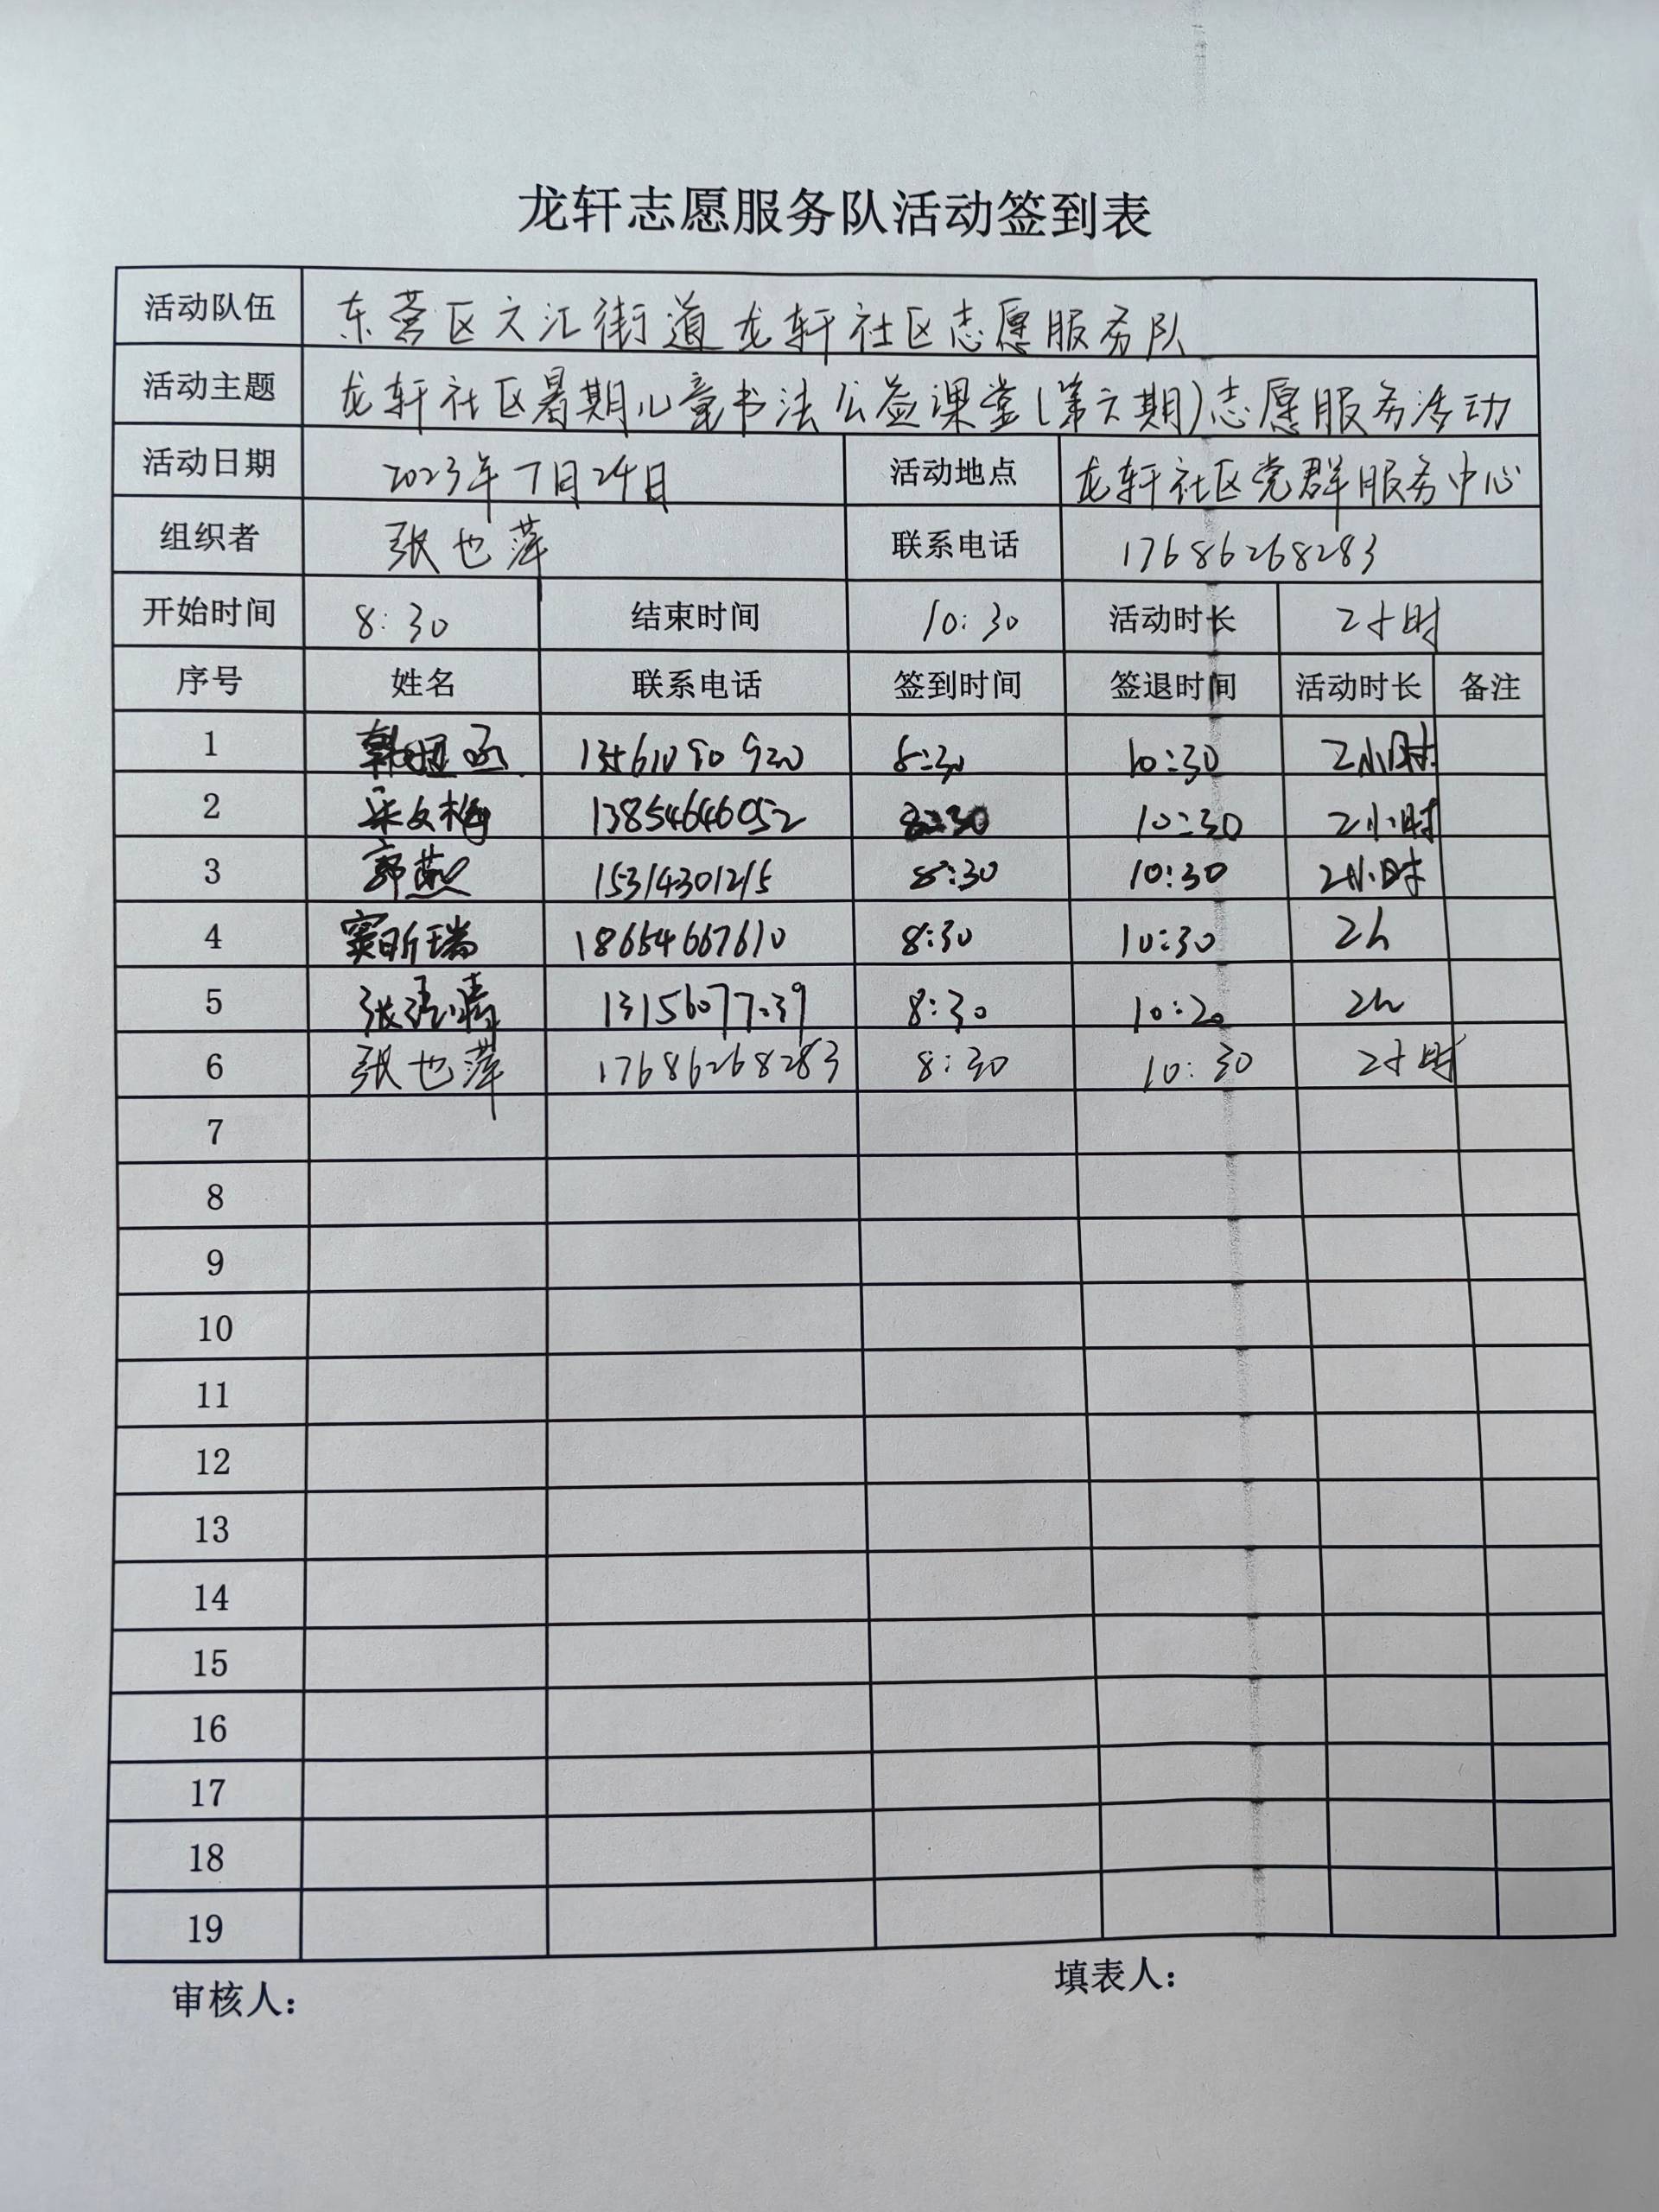 龙轩志愿服务队活动签到表
活动队伍 东营区文汇街道龙轩社区志愿服务队
活动主题 龙轩社区暑期儿童书法公益课堂(第六期)志愿服务活动
活动日期 2023年7月24日 活动地点 龙轩社区党群服务中心
组织者 张也萍 联系电话 17686268283
开始时间 8:30 结束时间 10:30 活动时长 2小时
序号 姓名 联系电话 签到时间 签退时间 活动时长 备注
1 8:30 10:30 2小时
2 13854646052 8:30 10:30 2小时
3 郭燕 15314301215 8:30 10:30 2小时
4 窦昕瑞 18654667610 8:30 10:30 2h
5 8:30 10:20 2h
6 张也萍 17686268283 8:30 10:30 2小时
7
8
9
10
11
12
13
14
15
16
17
18
19
审核人: 填表人: